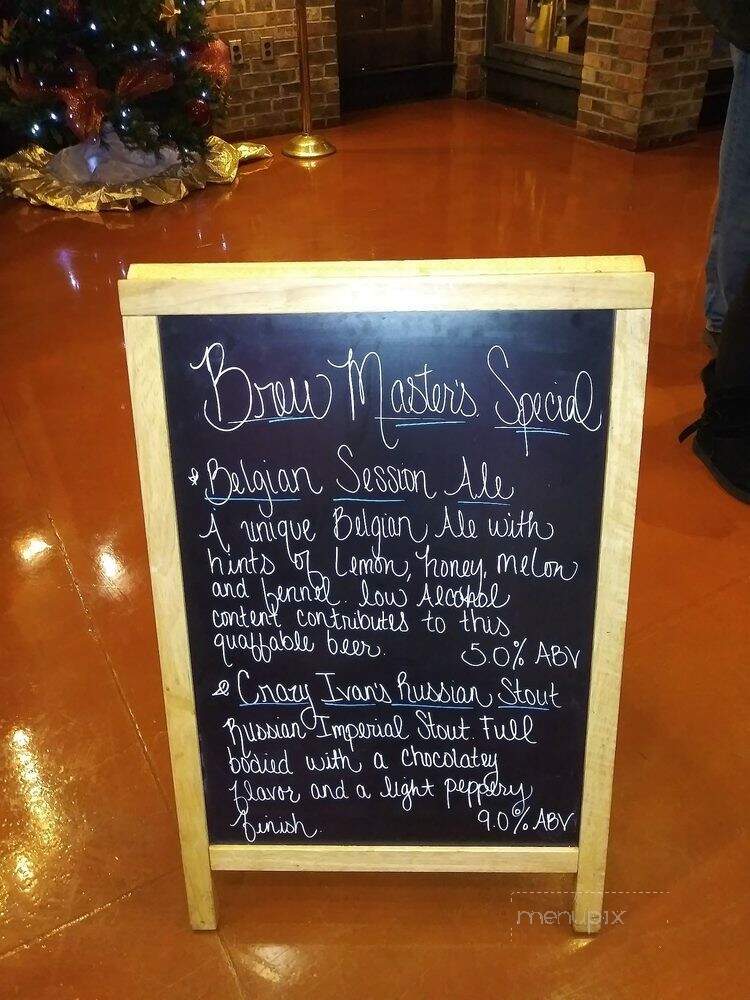 Brew Master's Special
Belgian Session Ale
A unique Belgian Ale with
hints of Lemon, honey, melon
and fennel. low Alcohol
content contributes to this
quaffable beer.
5.0% ABV
Crazy Ivan's Russian Stout
Russian Imperial Stout. Full
bodied with a chocolatey
flavor and a light peppery
finish.
9.0% ABV
menupix